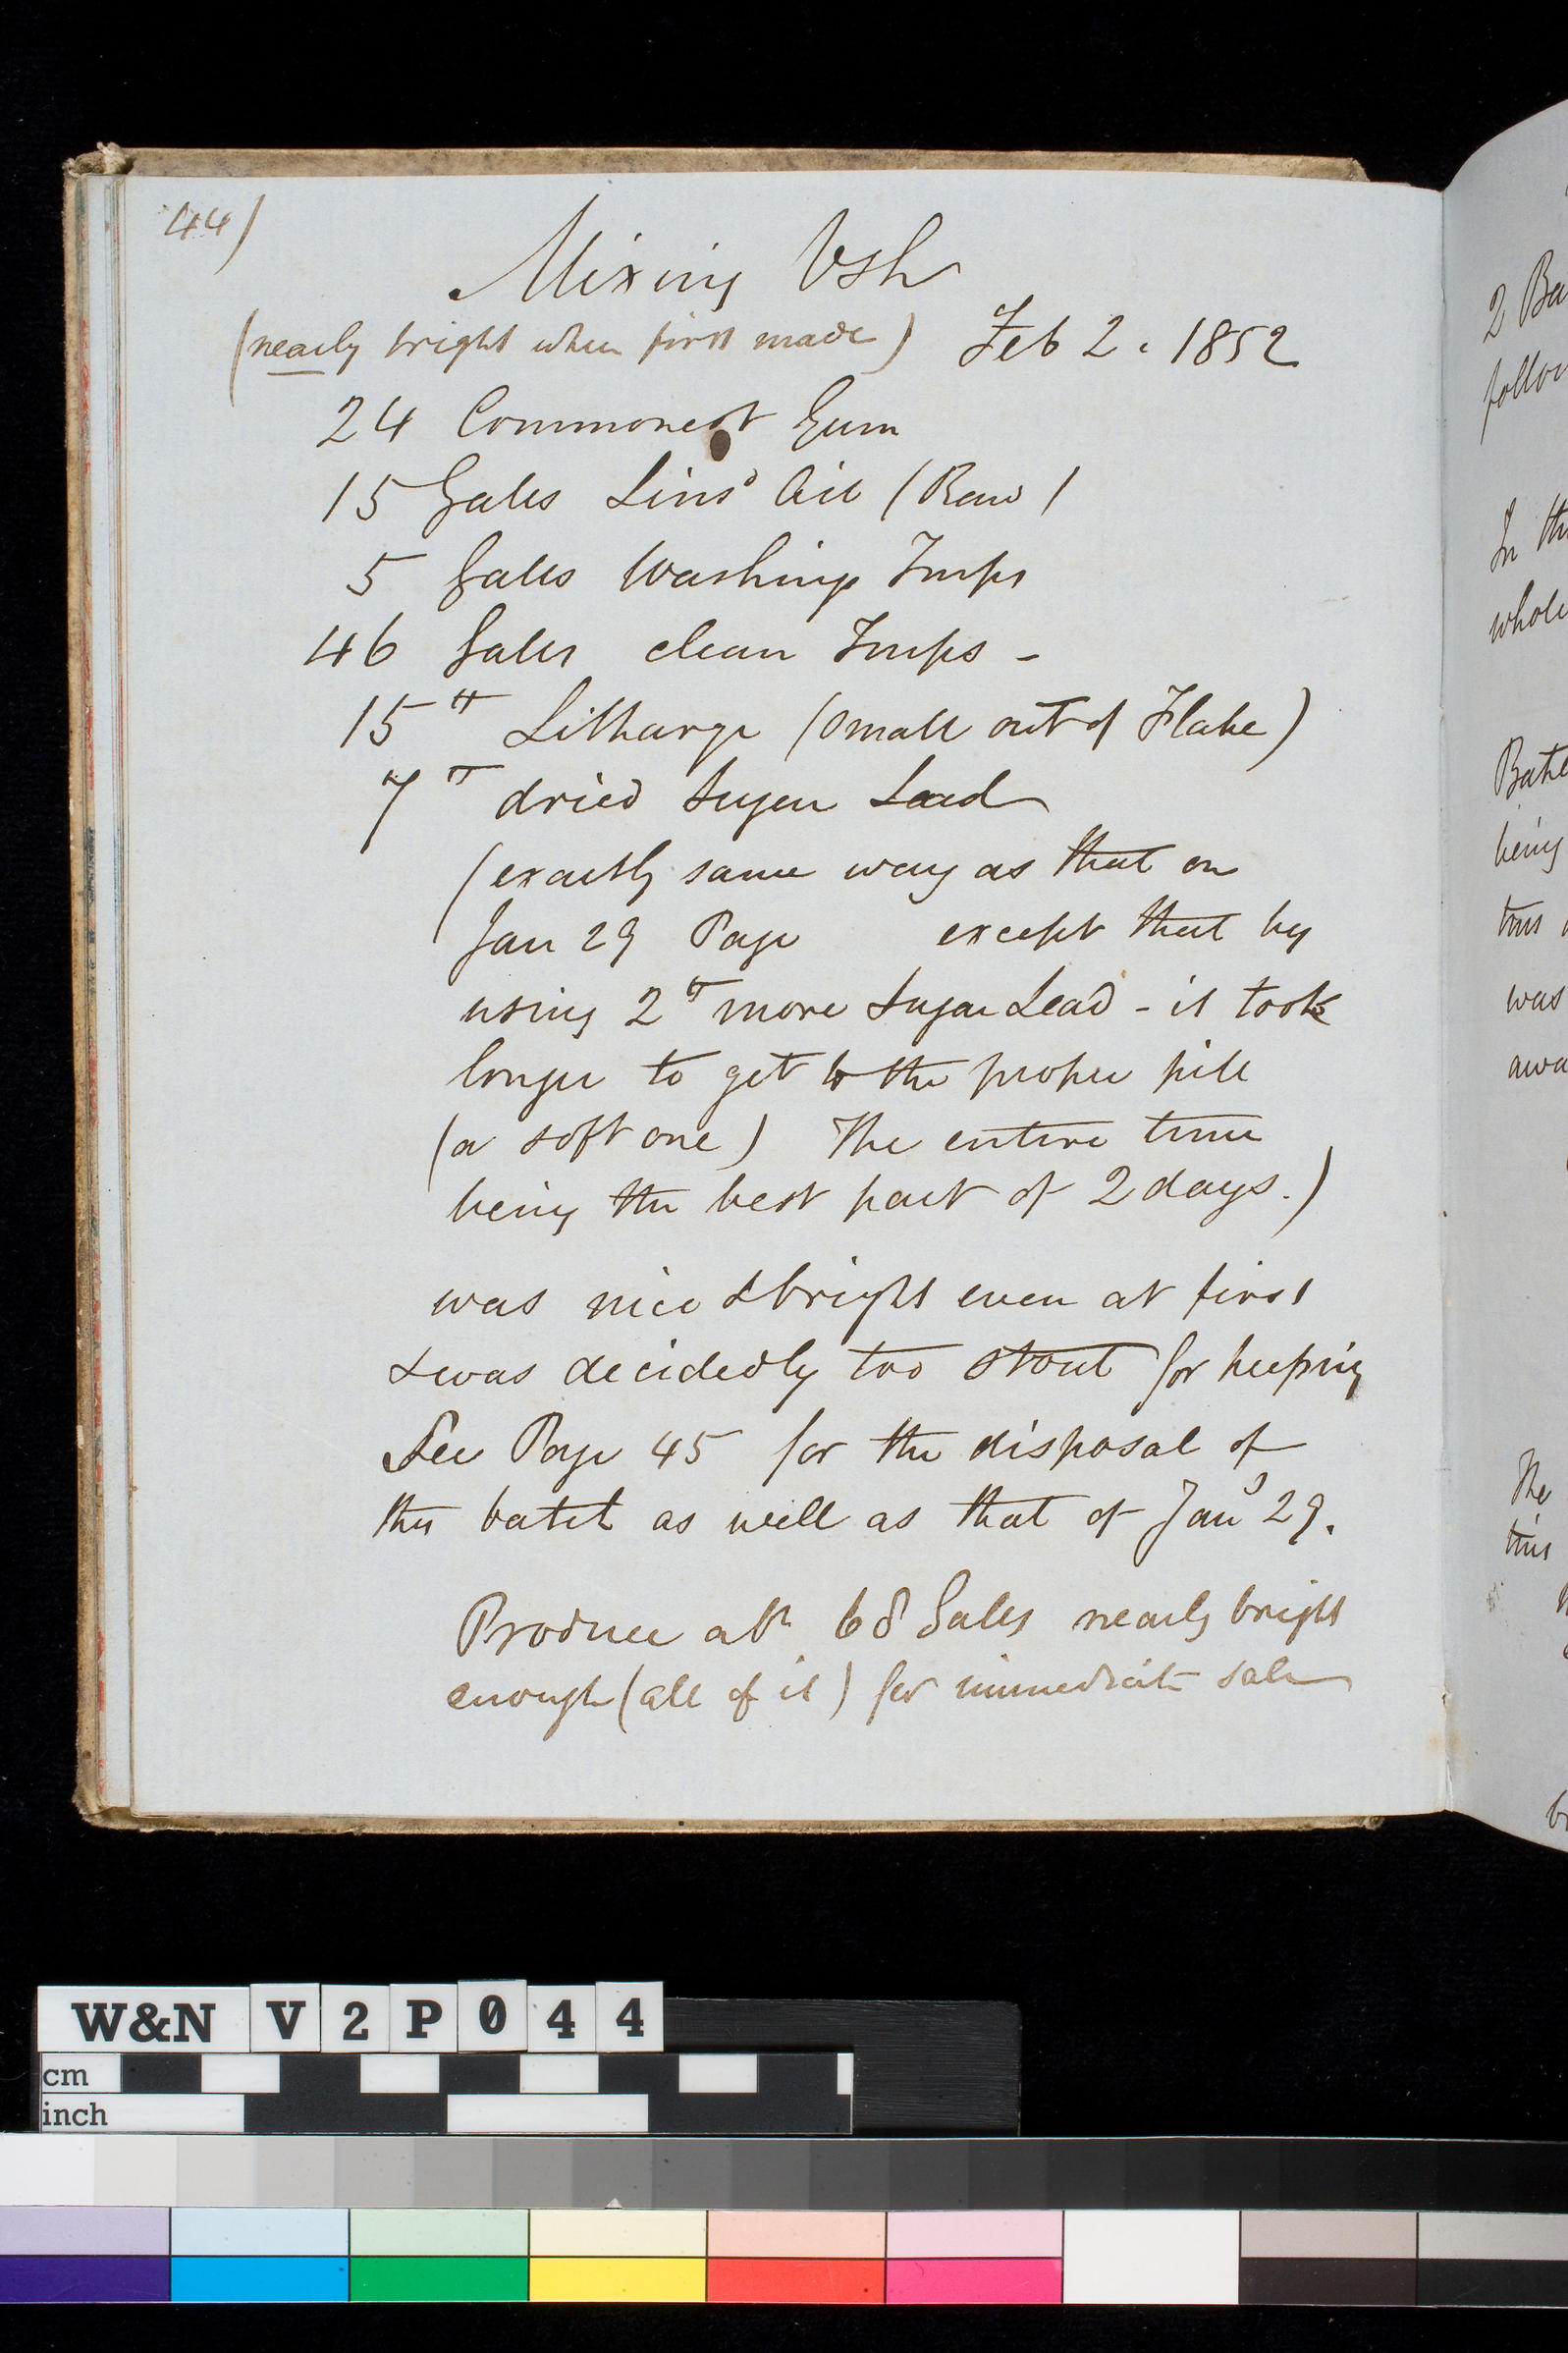 44)
Mixing Vsh
(nearly bright when first made) Feb 2. 1852
24 Commonest Gum
15 Galls Linsd Oil (Raw)
5 Galls Washing Turps
46 Galls clean Turps -
15 lb Litharge (small out of Flake)
7 lb dried Sugar Lead
(exactly same way as that on
Jan 29 Page except that by
using 2 lb more Sugar Lead - it took
longer to get to the proper pill
(a soft one) The entire time
being the best part of 2 days.)
was nice & bright even at first
& was decidedly too stout for keeping
See Page 45 for the disposal of
this batch as well as that of Jany 29.
Produce abt 68 Galls nearly bright
enough (all of it) for immediate sale
2 Ba
follow
In th
whole
Batc
being
tins
was
awa
The
this
W&N V2P044
cm
inch